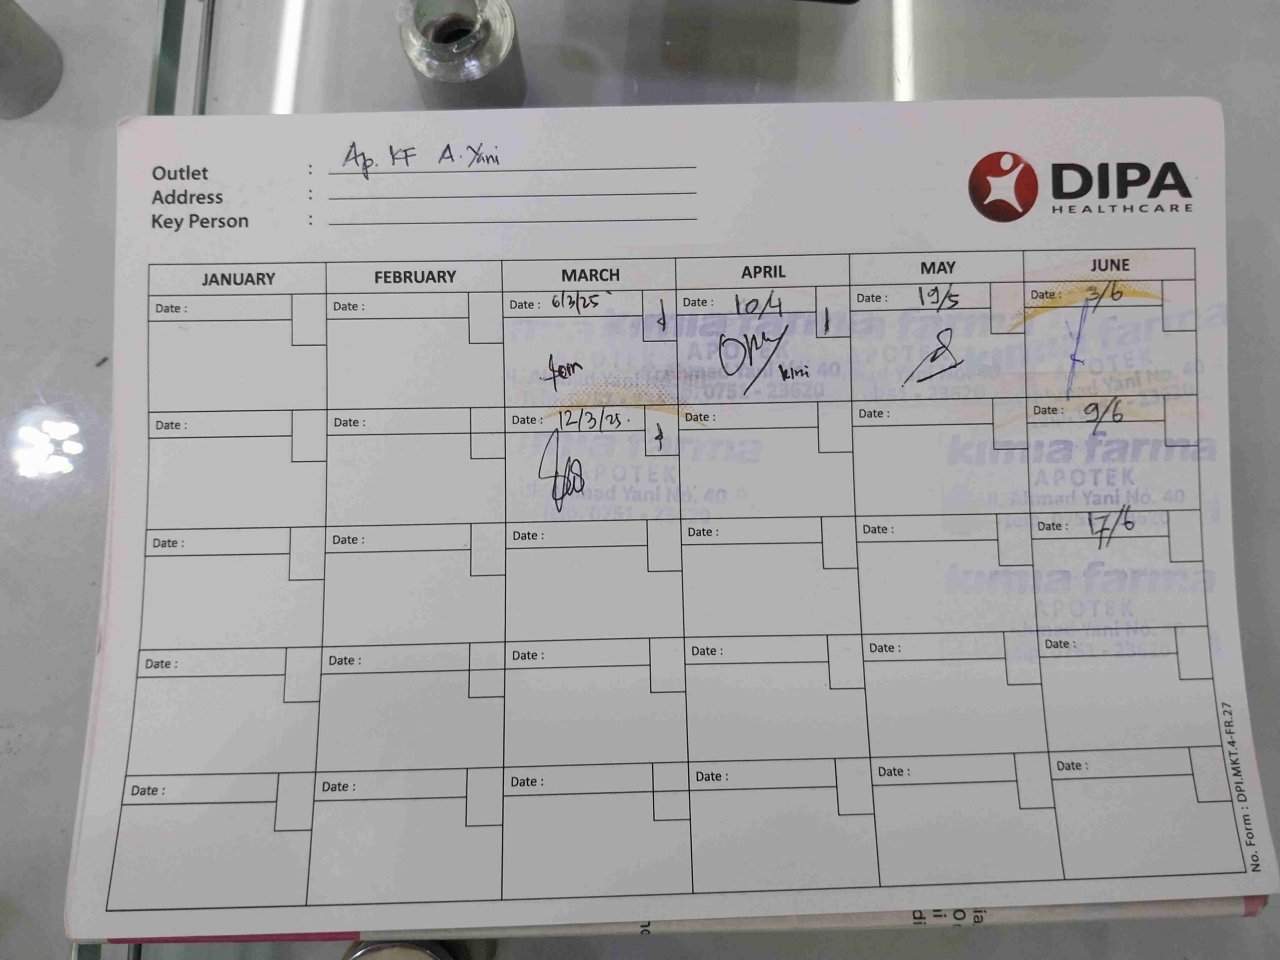 Outlet : Ap. KF A. Yani
Address :
Key Person :
DIPA
HEALTHCARE
JANUARY FEBRUARY MARCH APRIL MAY JUNE
Date : Date : Date : 6/3/25 Date : 10/4 Date : 19/5 Date : 3/6
kimia farma
APOTEK
Date : Date : Date : 12/3/25. Date : Date : Date : 9/6
kimia farma
APOTEK
Jl. Ahmad Yani No. 40
Date : Date : Date : Date : Date : Date : 17/6
kimia farma
APOTEK
Date : Date : Date : Date : Date : Date :
Date : Date : Date : Date : Date : Date :
No. Form : DPI.MKT.4-FR.27